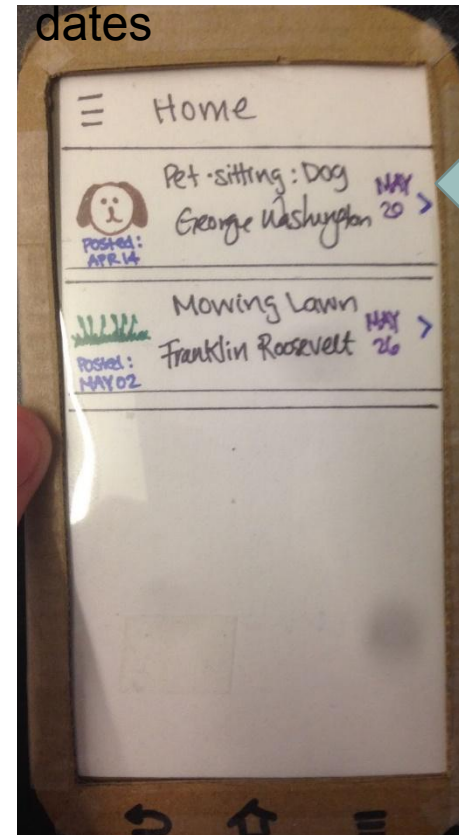 dates
Home
Pet-sitting: Dog
George Washington
MAY
20
Posted:
APR 14
Mowing Lawn
Franklin Roosevelt
MAY
26
Posted:
MAY 02